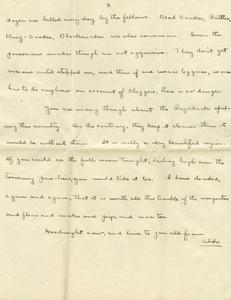 8
dozen are killed every day by the fellows. Dead Snakes, Rattle,
King-Snakes, Blacksnakes are also common. Even the
poisonous snakes though are not aggressive. They don't get
vicious until stepped on, and then if one wears leggins, as one
has to do anyhow on account of Chiggers, there is no danger.
You are wrong though about the
this country. On the contrary, they keep it cleaner than it
would be without them. It is really a very beautiful region.
If you could see the full moon tonight, sailing high over the
towering pine-trees, you would like it too. I have decided,
again and again, that it is worth all the trouble of the mosquitoes
and fleas and snakes and and
Goodnight now, and love to you all from